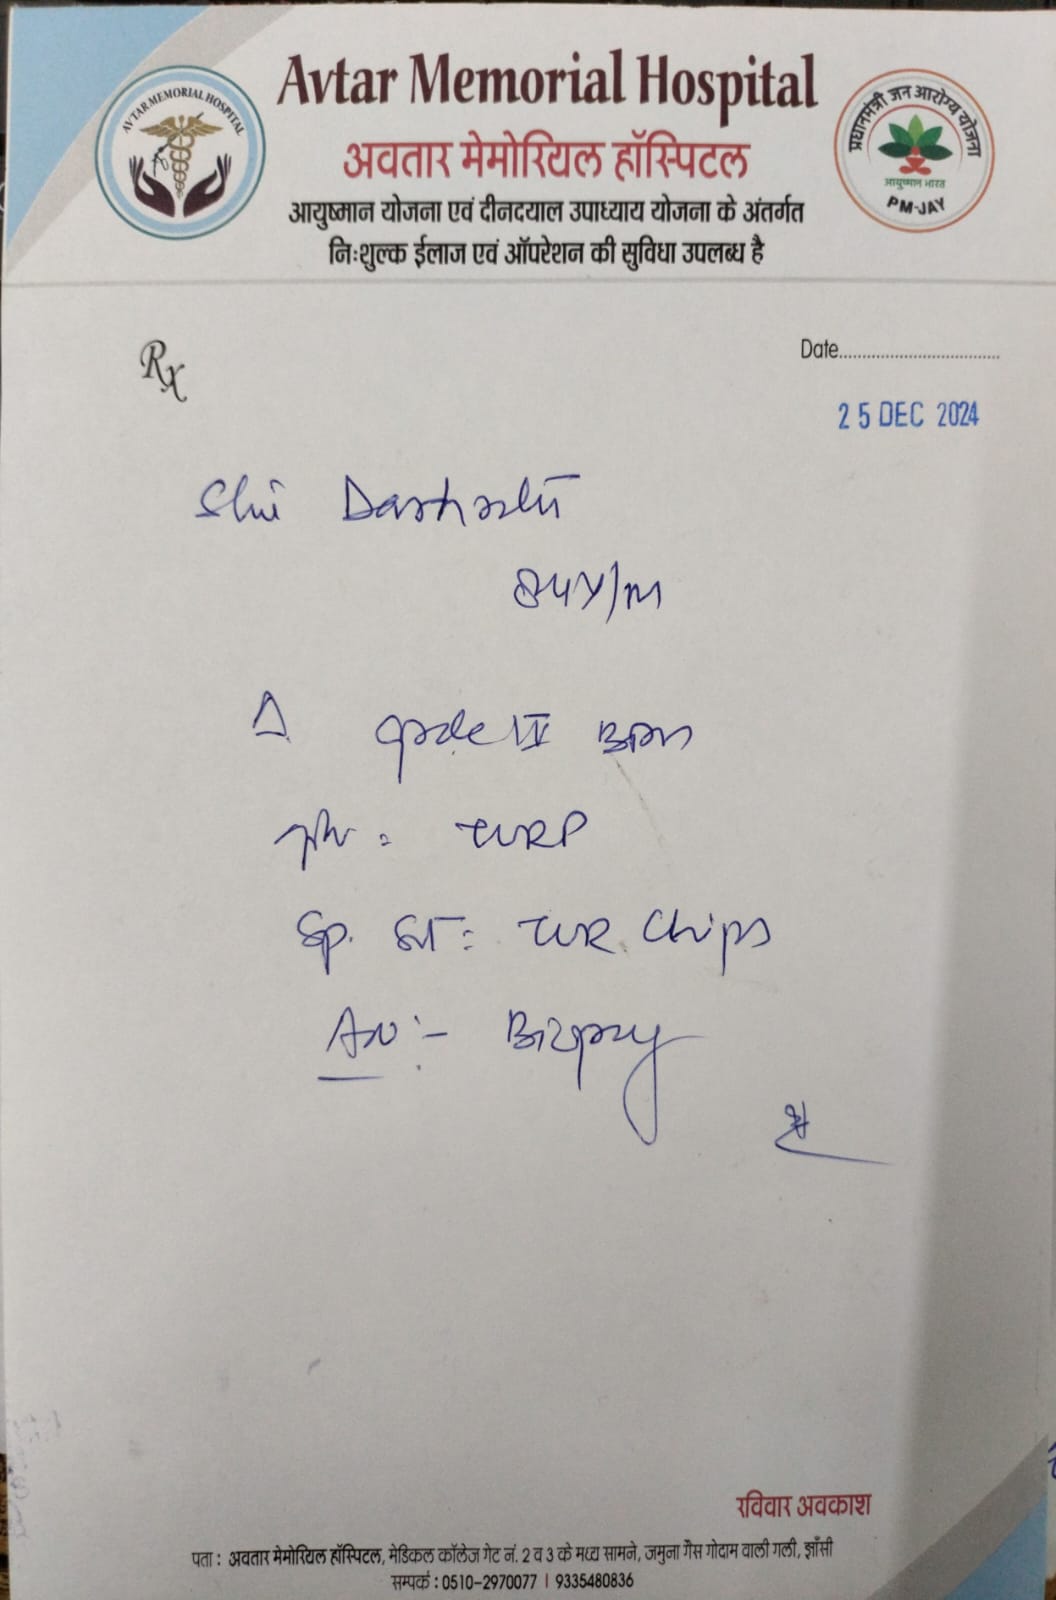 AVTAR MEMORIAL HOSPITAL
Avtar Memorial Hospital
अवतार मेमोरियल हॉस्पिटल
आयुष्मान योजना एवं दीनदयाल उपाध्याय योजना के अंतर्गत
निःशुल्क ईलाज एवं ऑपरेशन की सुविधा उपलब्ध है
प्रधानमंत्री जन आरोग्य योजना
आयुष्मान भारत
PM-JAY
Rx
Date
25 DEC 2024
Shri
84Y/M
Δ Grade IV BPH
TURP
Sp. TUR Chips
Adv :- Biopsy
रविवार अवकाश
पता : अवतार मेमोरियल हॉस्पिटल, मेडिकल कॉलेज गेट नं. 2 व 3 के मध्य सामने, जमुना गैस गोदाम वाली गली, झाँसी
सम्पर्क : 0510-2970077 | 9335480836